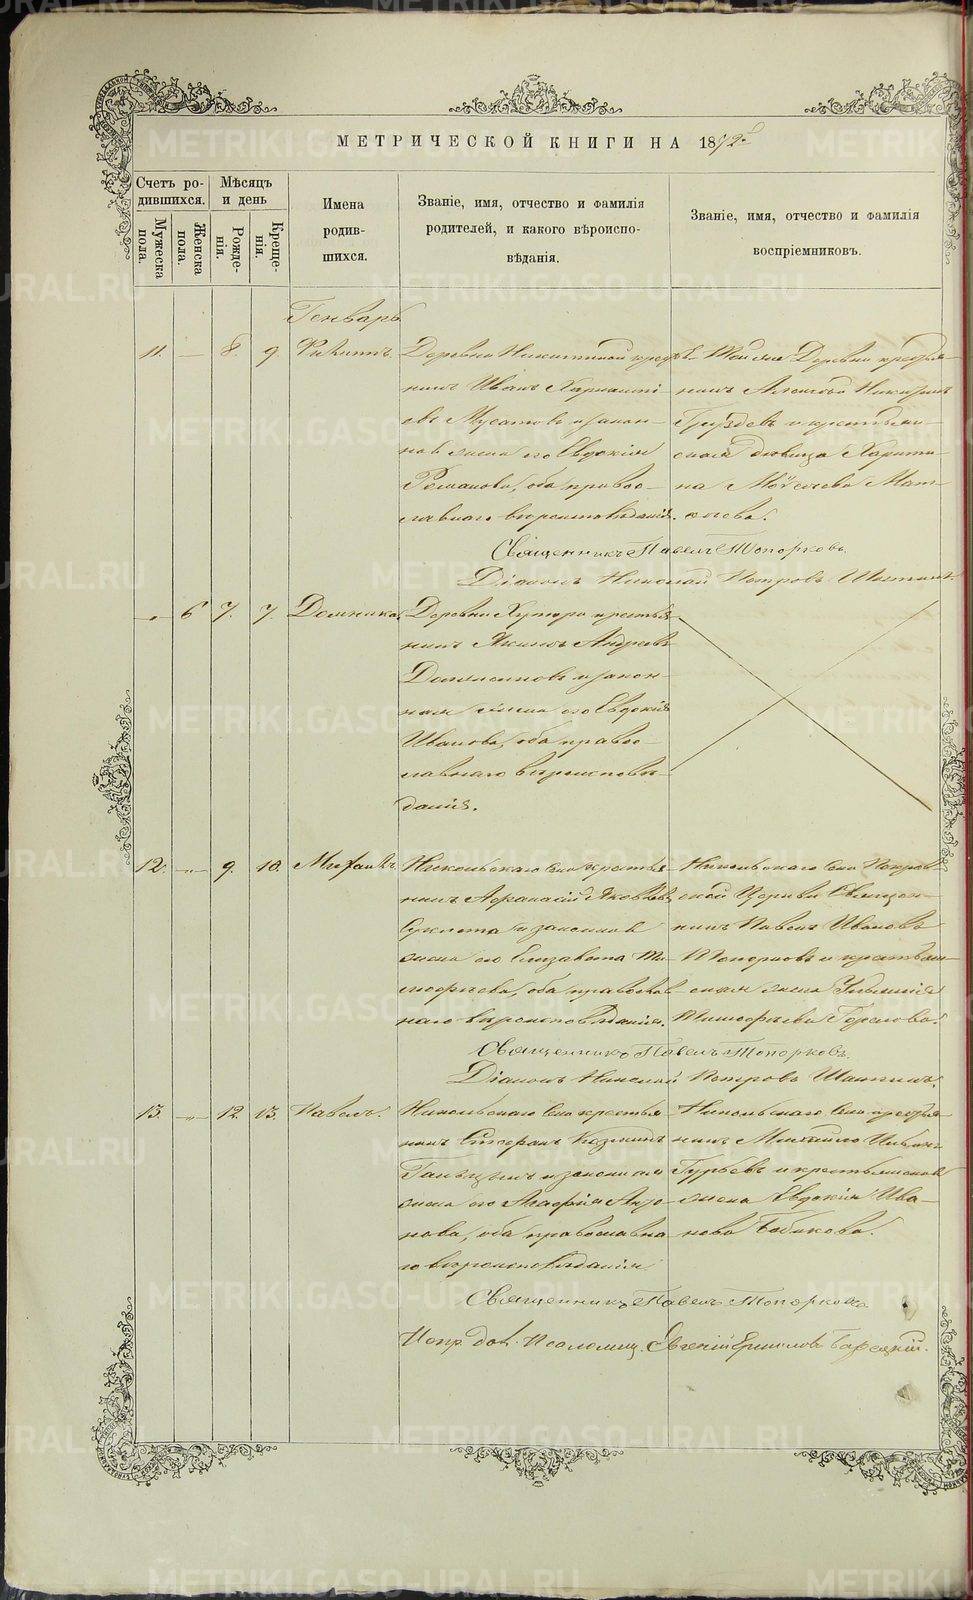 МЕТРИЧЕСКОЙ КНИГИ НА 1872й
Счетъ ро-
дившихся.
Мѣсяцъ
и день
Мужеска
пола.
Женска
пола.
Рожде-
нія.
Креще-
нія.
Имена
родив-
шихся.
Званіе, имя, отчество и фамилія
родителей, и какого вѣроиспо-
вѣданія.
Званіе, имя, отчество и фамилія
воспріемниковъ.
Генварь
11. — 8. 9.
Деревни Никитиной крестья-
нинъ Иванъ
и закон-
ная жена его Евдокія
Романова, оба право-
славнаго вѣроисповѣданія.
Той же Деревни крестья-
нинъ
Груздевъ и крестьян-
ская дѣвица Харити-
на Моѵсеева
Священникъ Павелъ Топорковъ
Діаконъ Николай Петровъ
6 7. 7. Домника.
Деревни Хутора крестья-
нинъ Якимъ Андреевъ
и закон-
ная жена его Евдокія
Иванова, оба право-
славнаго вѣроисповѣ-
данія.
12. — 9. 10. Михаилъ.
Никольскаго Села крестья-
нинъ Афанасій Яковлевъ
и законная
жена его Елизавета Ти-
мофѣева, оба православ-
наго вѣроисповѣданія.
Никольскаго Села Покров-
ской Церкви Священ-
никъ Павелъ Ивановъ
Топорковъ и крестьян-
ская жена
Тимофѣева Горелова.
Священникъ Павелъ Топорковъ.
Діаконъ Николай Петровъ
13. — 12. 13. Павелъ.
Никольскаго Села крестья-
нинъ Стефанъ Козминъ
и законная
жена его Агафія Анто-
нова, оба православна-
го вѣроисповѣданія
Никольскаго Села крестья-
нинъ Михаилъ Ивановъ
Гурьевъ и крестьянская
жена Евдокія Ива-
нова Бабикова.
Священникъ Павелъ Топорковъ
Испр. дол. Псаломщ. Евгеній
METRIKI.GASO-URAL.RU